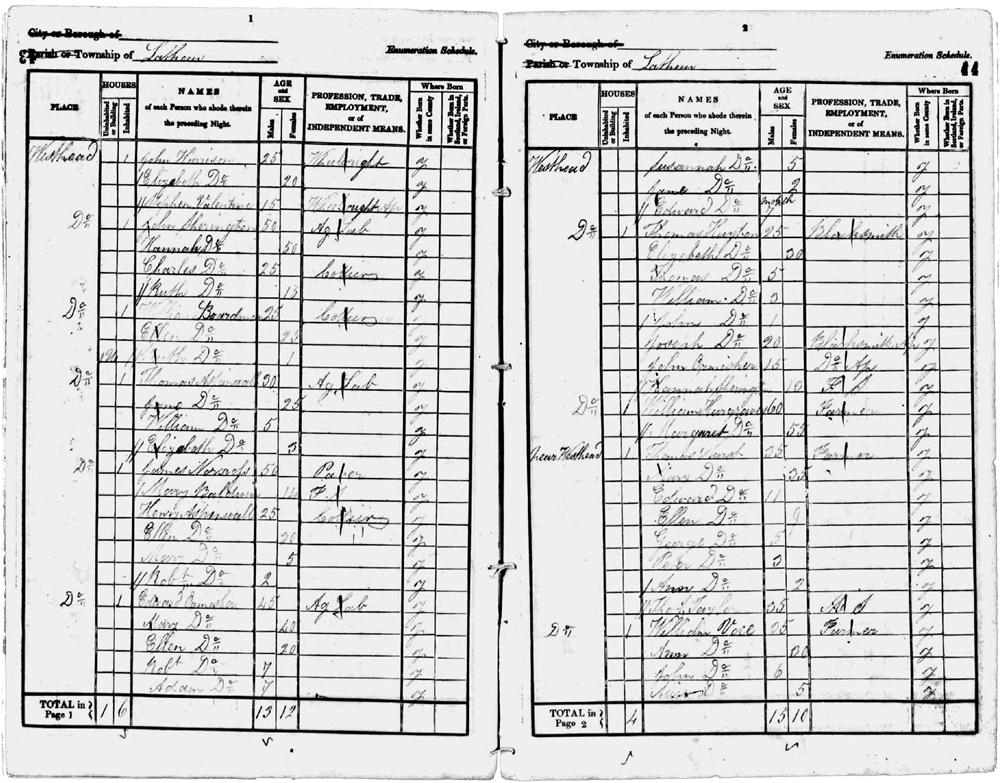 1
City or Borough of
Parish or Township of Lathom
Enumeration Schedule.
PLACE
HOUSES
Uninhabited or Building
Inhabited
NAMES
of each Person who abode therein
the preceding Night.
AGE
and
SEX
Males
Females
PROFESSION, TRADE,
EMPLOYMENT,
or of
INDEPENDENT MEANS.
Where Born
Whether Born in same County
Whether Born in Scotland, Ireland, or Foreign Parts.
Westhead 1 John Harrison 25 y
Elizabeth Do 20 y
Valentine 15 y
Do 1 John 50 Ag Lab y
Hannah Do 50 y
Charles Do 25 Collier y
Ruth Do 15 y
Do 1 William Boardman 25 Collier y
Ellen Do 25 y
Do 1 y
Do 1 Thomas Aspinwall 30 Ag Lab y
Jane Do 25 y
William Do 5 y
Elizabeth Do 3 y
Do 1 James 50 y
Mary Baldwin F.S y
Henry Aspinwall 25 Collier y
Ellen Do 20 y
Mary Do 5 y
Robt Do 2 y
Do 1 Edward Ormisher 45 Ag Lab y
Mary Do 40 y
Ellen Do 20 y
Robt Do 7 y
Adam Do 7 y
TOTAL in Page 1 1 6 13 12
2
City or Borough of
Parish or Township of Lathom
Enumeration Schedule.
PLACE
HOUSES
Uninhabited or Building
Inhabited
NAMES
of each Person who abode therein
the preceding Night.
AGE
and
SEX
Males
Females
PROFESSION, TRADE,
EMPLOYMENT,
or of
INDEPENDENT MEANS.
Where Born
Whether Born in same County
Whether Born in Scotland, Ireland, or Foreign Parts.
Westhead Susannah Do 5 y
Jane Do 2 y
Edward Do y
Do 1 Thomas 25 Blacksmith y
Elizabeth Do 30 y
Thomas Do 5 y
William Do 3 y
John Do 1 y
Joseph Do 20 Blacksmith y
John Ormisher 15 Do Ap y
Hannah F S y
Do 1 William Hargraves 60 Farmer y
Margaret Do 55 y
near Westhead 1 35 Farmer y
Do 35 y
Edward Do 11 y
Ellen Do 9 y
George Do 5 y
Peter Do 3 y
Ann Do 2 y
Taylor 35 y
Do 1 William 35 Farmer y
Ann Do 30 y
John Do 6 y
Do 5 y
TOTAL in Page 2 4 15 10